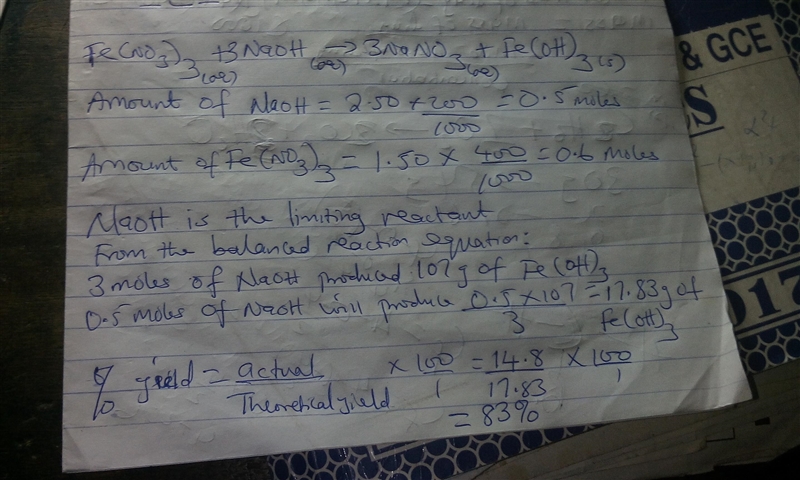 Fe(NO3)3(aq) + 3NaOH(aq) → 3NaNO3(aq) + Fe(OH)3(s)
Amount of NaOH = 2.50 × 200/1000 = 0.5 moles
Amount of Fe(NO3)3 = 1.50 × 400/1000 = 0.6 moles
NaOH is the limiting reactant
From the balanced reaction equation:
3 moles of NaOH produced 107g of Fe(OH)3
0.5 moles of NaOH will produce 0.5 × 107/3 = 17.83g of Fe(OH)3
% yield = actual/Theoretical yield × 100/1 = 14.8/17.83 × 100/1
= 83%
& GCE
S
017